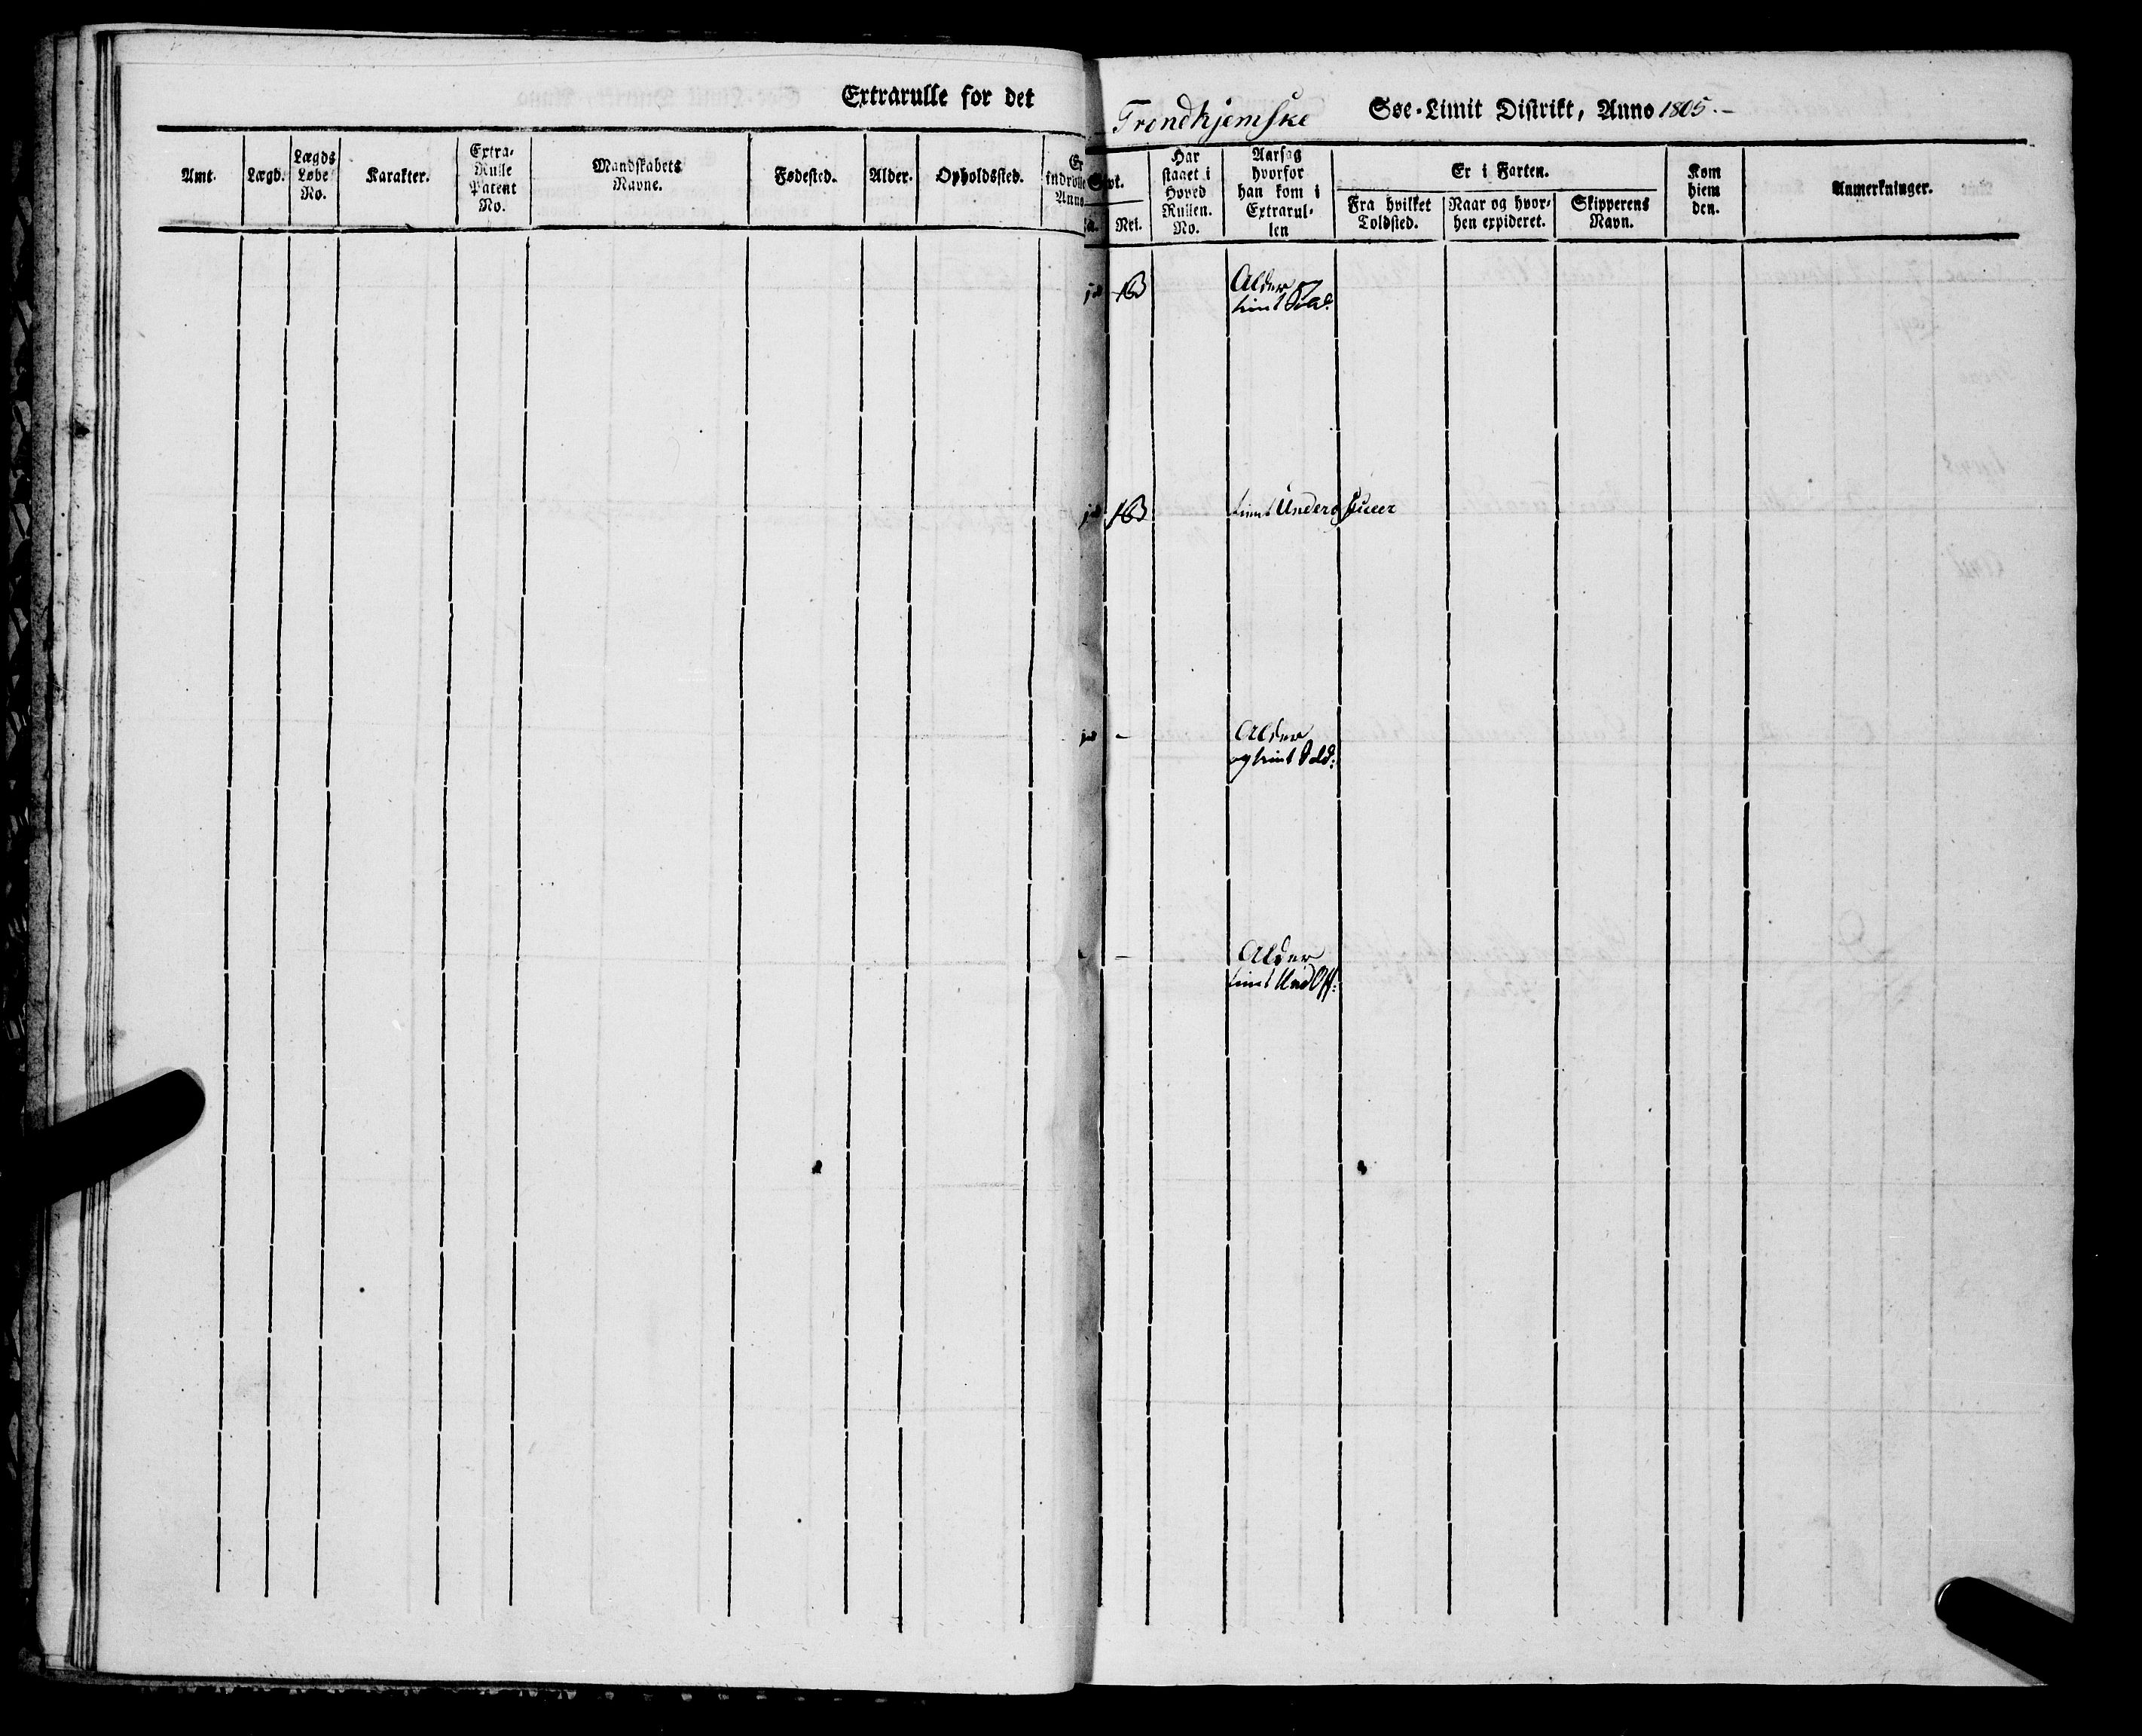 Extrarulle for det
Trondhjemske Søe-Limit Distrikt, Anno 1805.-
Amt.
Lægd.
Lægds
Løbe
No.
Karakter.
Extra-
Rulle
Patent
No.
Mandskabets
Navne.
Fødested.
Alder.
Opholdssted.
Er
indrulle
Anno
Givt.
Nei.
Har
staaet i
Hoved
Rullen.
No.
Aarsag
hvorfor
han kom i
Extrarul-
len
Er i Farten.
Fra hvilket
Toldsted.
Naar og hvor-
hen expideret.
Skipperens
Navn.
Kom
hiem
den.
Anmerkninger.
Alder
tient
tient Under
Alder
og tient Sold:
Alder
tient Und Off: